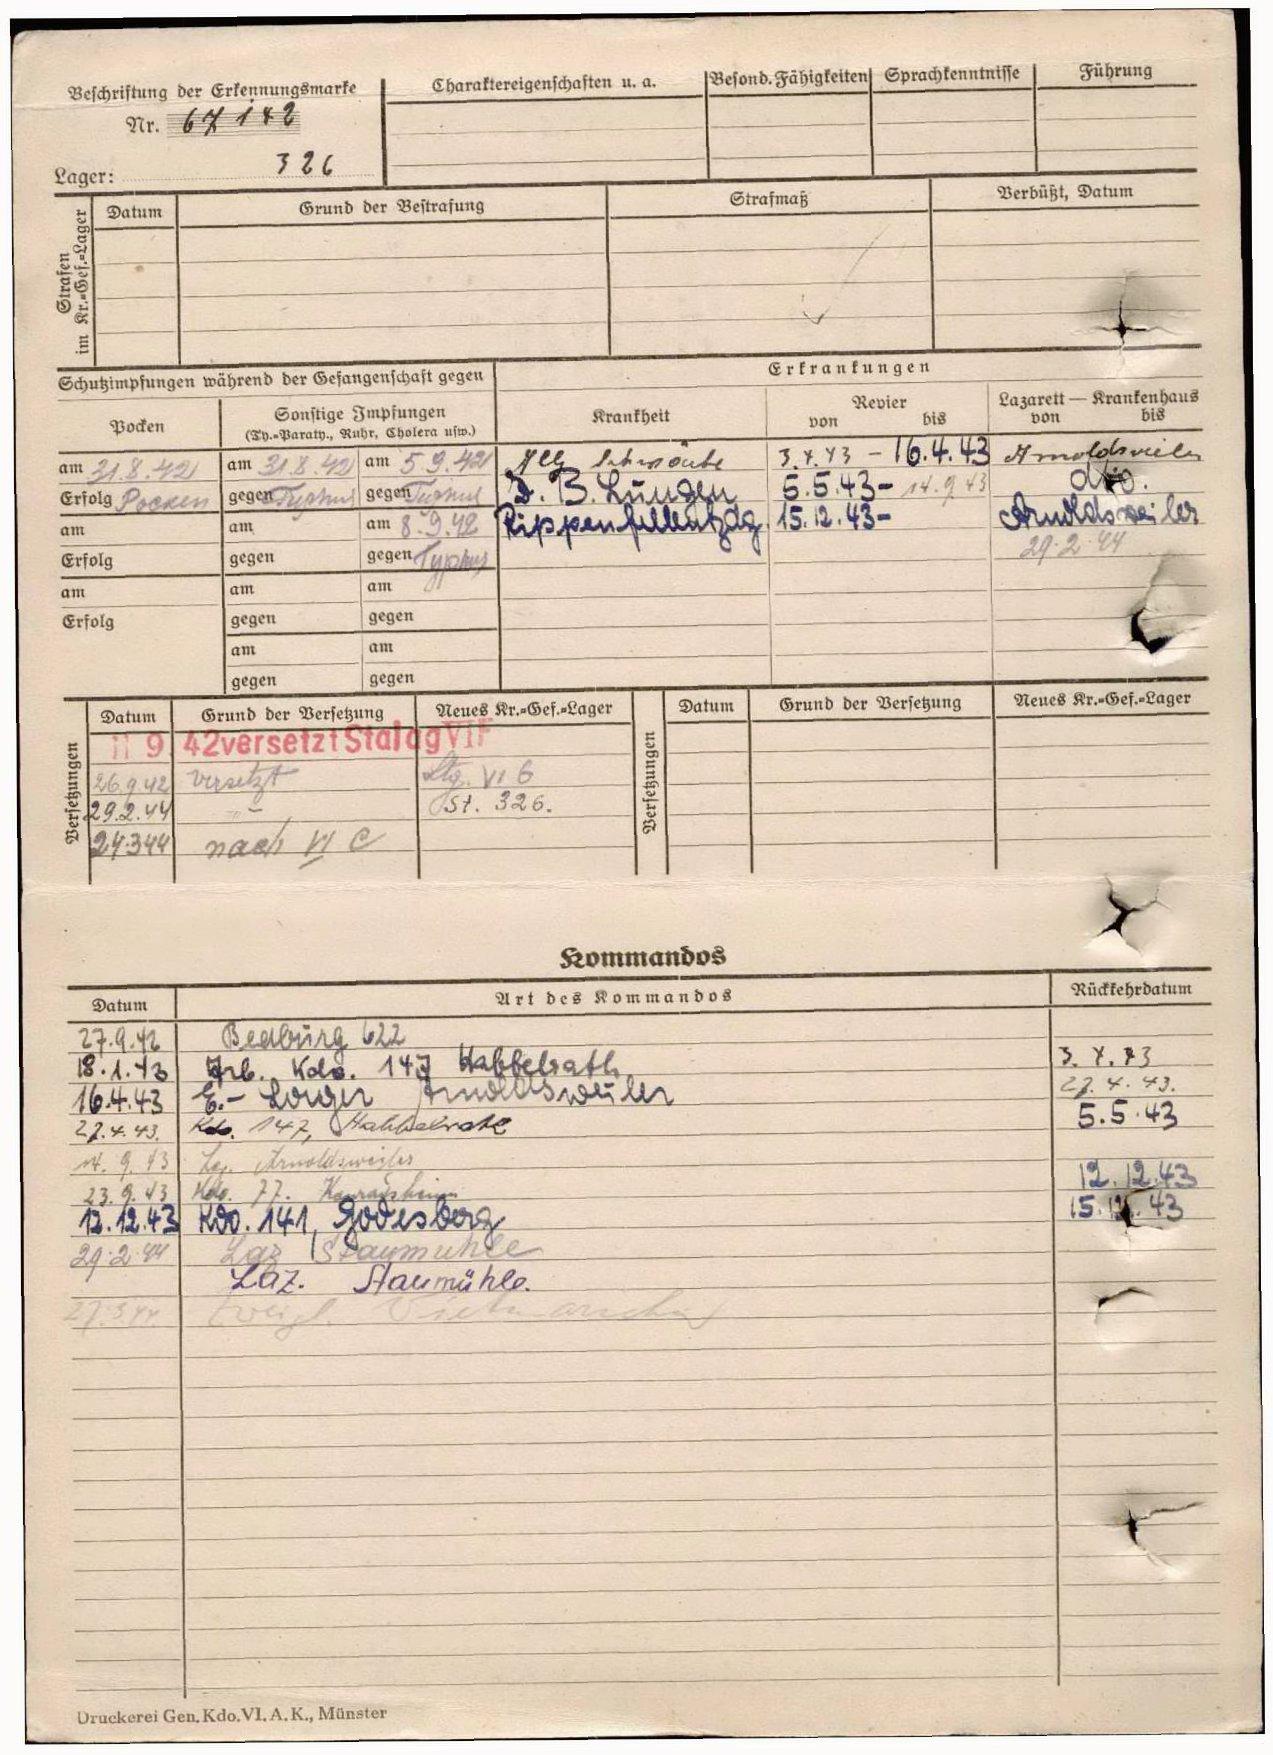 Beschriftung der Erkennungsmarke
Nr. 67142
Lager: 326
Charaktereigenschaften u. a.
Besond. Fähigkeiten
Sprachkenntnisse
Führung
Strafen im Kr.=Gef.=Lager
Datum
Grund der Bestrafung
Strafmaß
Verbüßt, Datum
Schutzimpfungen während der Gefangenschaft gegen
Erkrankungen
Pocken
Sonstige Impfungen
(Ty.=Paraty., Ruhr, Cholera usw.)
Krankheit
Revier
von bis
Lazarett — Krankenhaus
von bis
am 31.8.42 am 31.8.42 am 5.9.42 Allg. 3.4.43 - 16.4.43 Arnoldsweiler
Erfolg Pocken gegen Typhus gegen Typhus D. B. Lungen 5.5.43 - 14.9.43 dto.
am am am 8.9.42 15.12.43 - Arnoldsweiler
Erfolg gegen gegen Typhus 29.2.44
am am am
Erfolg gegen gegen
am am
gegen gegen
Versetzungen
Datum Grund der Versetzung Neues Kr.=Gef.=Lager
Versetzungen
Datum Grund der Versetzung Neues Kr.=Gef.=Lager
11 9. 42 versetzt Stalag VI F
26.9.42 versetzt Stlg. VI G
29.2.44 - " - St. 326.
24.3.44 nach VI C
Kommandos
Datum Art des Kommandos Rückkehrdatum
27.9.42 Bedburg 622
18.1.43 Arb. Kdo. 147 Habbelrath 3.4.43
16.4.43 E.- Lager Arnoldsweiler 27.4.43.
27.4.43. Kdo. 147, Habbelrath 5.5.43
14.9.43 Lg. Arnoldsweiler
23.9.43 Kdo. 77. Konradsheim 12.12.43
12.12.43 Kdo. 141, Godesberg 15.12.43
29.2.44 Laz Staumühle
Laz. Staumühle.
27.3.44
Druckerei Gen. Kdo. VI. A. K., Münster